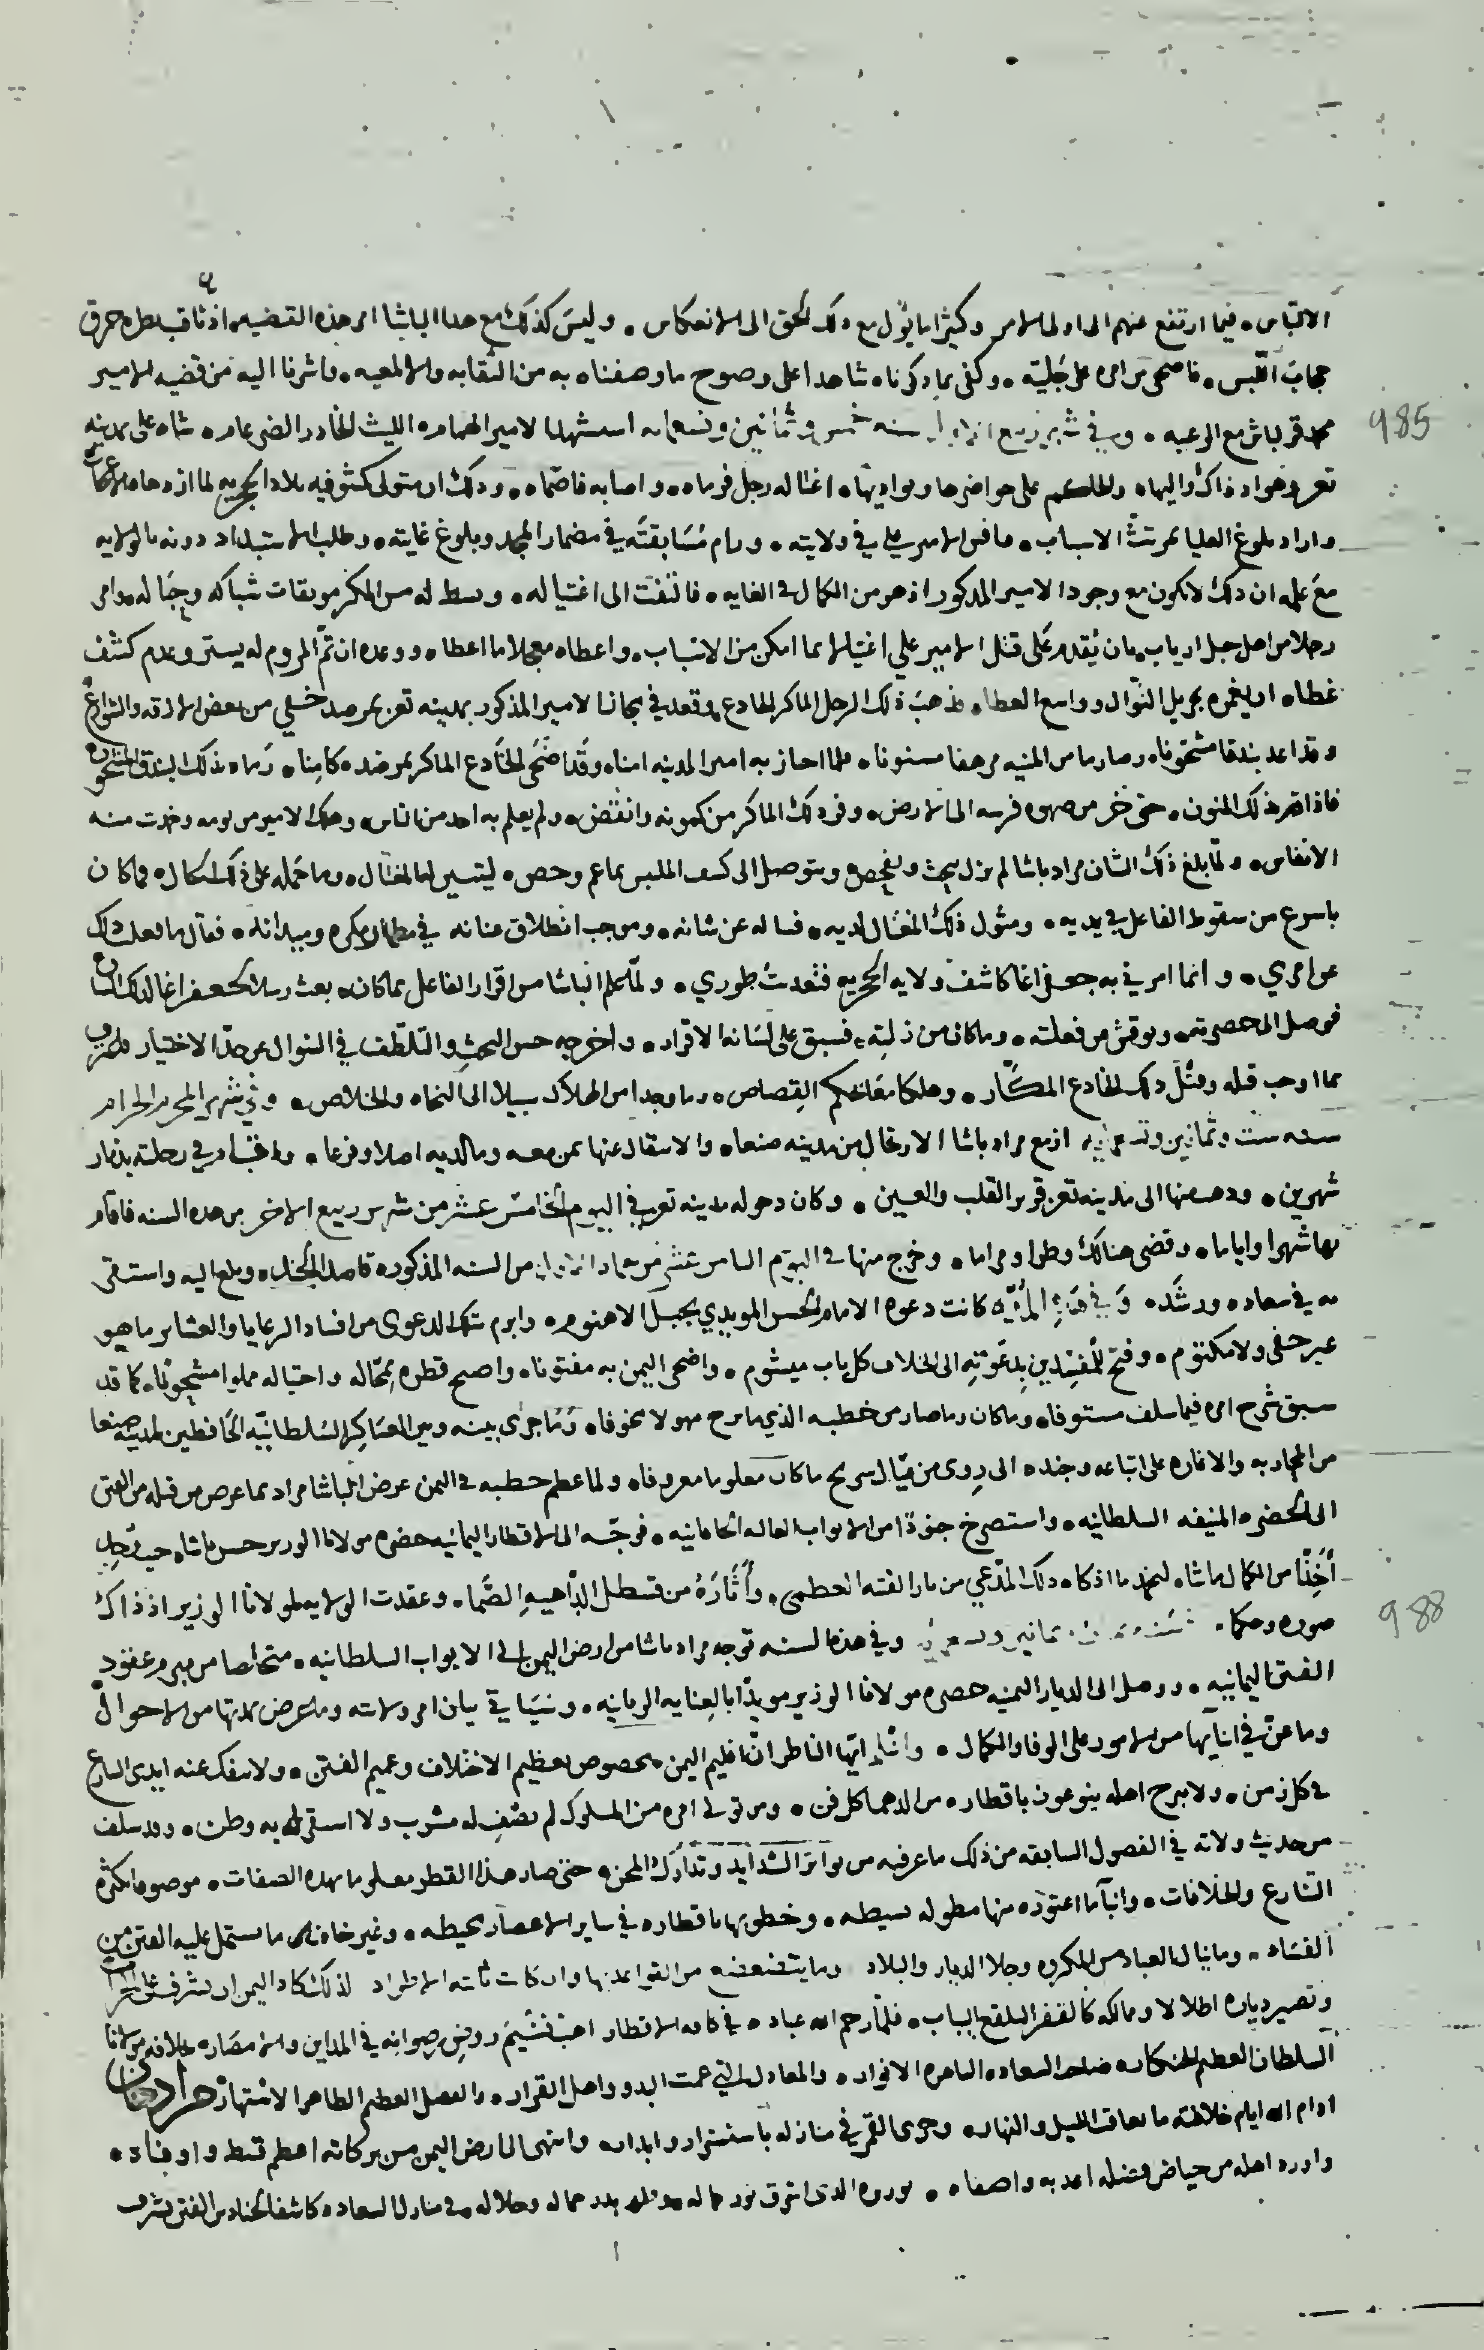 الالتباس، فيما ارتفع عنهم الى اولى الامر وكثيرا ما يؤل مع ذلك الحق الى الانعكاس، وليس كذلك مع هذا الباشا امر هذه القضيه، اذ ثاقب نظره خرق
حجاب اللبس، فاضحى من امره على جليّة، وكفى بما ذكرناه شاهدا على وضوح ما وصفناه به من النقابه والالمعيه، واشرنا اليه من قضيه الامير
محمد قزلباش مع الرعيه، وفي شهر ربيع الاول سنه خمس وثمانين وتسعمايه استشهد الامير الهمام، الليث الخادر الضرغام، شاه على بمدينه
تعز وهو اذ ذاك واليها، والحاكم على حواضرها وبواديها، اغتاله رجل فرماه، واصابه فاصماه، وذلك ان متولى كشوفيه بلاد الحجريه لما ازدهاه الاعجاب
واراد بلوغ العليا برثّ الاسباب، نافس الامير علي في ولايته، ورام مُسَابقته في مضمار المجد وبلوغ غايته، وطلب الاستبداد دونه بالولايه
معَ علمه ان ذلك لا يكون مع وجود الامير المذكور اذ هو من الكمال في الغايه، فالتفت الى اغتياله، وبسط له من المكر موبقات شباكه وحباله، واغرى
رجلا من اهل جبل ارياب، بان يُقدم على قتل الامير علي اغتيالا بما امكن من الاسباب، واعطاه معجلا ما اعطاه، ووعده ان تمّ المروم له بستر وعدم كشف
غطاه ان يغمره بجزيل النوال وواسع العطا، فذهبَ ذلك الرجل الماكر الخادع وقعد في مجاز الامير المذكور بمدينه تعز بمرصد خفي من بعض الازقه والشوارع
وقد اعد بندقا مشحونا، وصارما من المنيه مرهفا مسنونا، فلما اجتاز به امير المدينه امنا، وقد اضحى الخادع الماكر بمرصده كامنا، رماه بذلك البندق المشحون
فاذاقه بذلك المنون، حتى خرّ من صهوه فرسه الى الارض، وفر ذلك الماكر من كمونه وانقض، ولم يعلم به احد من الناس، وهلك الامير من يومه وخمدت منه
الانفاس، ولمّا بلغ ذلك الشان مراد باشا لم يزل يبحث ويفحص ويتوصل الى كشف الملبس بما عم وخص، ليتبين له المغتال، وما حمله على ذلك النكال، فما كان
باسرع من سقوط الفاعل في يديه، ومثول ذلك المغتال لديه، فساله عن شانه، وموجب انطلاق عنانه في مضمار مكره وميدانه، فقال ما فعلت ذلك
عن امري، وانما امرني به جعفر اغا كاشف ولايه الحجريه فتعديت طوري، ولمّا علم الباشا من اقرار الفاعل بما كان، بعث رسلا لجعفر اغا لذلك الشان
فوصل الى حضرته، ونوقش من فعلته، وما كان من زلته، فسبق على لسانه الاقرار، واخرجه حسن البحث والتلطف في السوال عن حدّ الاختيار فاعترف
بما اوجب قتله وقتل ذلك الخادع المكّار، وهلكا معا بحكم القِصاص، وما وجدا من الهلاك سبيلا الى النجاه والخلاص، وفي شهر المحرم الحرام
سنه ست وثمانين وتسعمايه ازمع مراد باشا الارتحال من مدينه صنعا، والانتقال عنها بمن معه وما لديه اصلا وفرعا، واقام في رحلته بذمار
شهرين، وذهب منها الى مدينه تعز قرير القلب والعين، وكان دخوله مدينه تعز في اليوم الخامس عشر من شهر ربيع الاخر من هذه السنه فاقام
بها شهرا واياما، وقضى هنالك وطرا ومراما، وخرج منها في اليوم الثامن عشر من جمادى الاولى من السنه المذكوره قاصدا الجند، وبلغ اليه واستقى
به في سعاده ورشَد، وَفي هَذِهِ المُدّه كانت دعوه الامام الحسن المويدي بجبل الاهنوم، وابرم بتلك الدعوى من افساد الرعايا والعشاير ما هو
غير خفي ولا مكتوم، وفتح للمفسِدين بدعوته الى الخلاف كل باب ميشوم، واضحى اليمن به مفتونا، واصبح قطره بمحاله واحتياله مملوا مشحونا، كما قد
سبق شرح امره فيما سلف مستوفا، وما كان وما صار من خطبه الذي ما برح مهولا مخوفا، وَمَا جرى بينه وبين العساكر السلطانيّه الحافظين لمدينه صنعا
من المحاربه والاغاره على اتباعه وجنده الى روى من قتال سريح ما كان معلوما معروفا، ولما عظم خطبه في اليمن عرض الباشا مراد بما عرض من قبله من الفتن
الى الحضره المنيفه السلطانيه، واستصرخ جنودًا من الابواب العاليه الخاقانيه، فوجّه الى الاقطار اليمانيه حضره مولانا الوزير حسن باشا، حيث رجل
أخِذًا من الكمال ما شا، ليخمد ما اذكاه ذلك المدّعي من نار الفتنه العظمى، وأثارَهُ من قسطل الداهيه الصَّما، وعقدت الولايه لمولانا الوزير اذ ذاك
صوره وحكما، سنه ثمان وثمانين وتسعمايه، وفي هذه السنه توجه مراد باشا من ارض اليمن الى الابواب السلطانيه، متخلصا من مبرم عقود
الفتن اليمانيه، ووصل الى الديار اليمنيه حضره مولانا الوزير مويدًا بالعنايه الربانيه، وسَيَاتي بيان امر ولايته وما عرض بمدتها من الاحوال
وما عنّ في اثنايها من الامور على الوفا والكمال، واعلم ايّها الناظر انّ اقليم اليمن مخصوص بعظيم الاختلاف وعميم الفتن، ولا تنفك عنه ايدى التنازع
في كل زمن، ولا يبرح اهله ينوعون باقطاره من الدهما كل فن، ومن تولى امره من الملوك لم يصف له مشرب ولا استقر له به وطن، وقد سلف
من حديث ولاته في الفصول السابقه من ذلك ما عرفته من تواتر الشدايد وتدارُك المحن، حتى صار هذا القطر معلوما بهذه الصفات، موصوما بكثره
التنازع والخلافات، وانبآ ما اعتوده منها مطوله بسيطه، وخطوبها باقطاره في ساير الاعصار محيطه، وغير خاف ما يشتمل عليه الفتن من
الفساد، وما ينال العباد من المكروه وجلا الديار والبلاد وما يتضعضع من القواعد بها وان كانت ثابته الاطواد لذلك كاد اليمن ان يشرف على الخراب
وتصير دياره اطلالا وممالكه كالقفر البلقع اليباب، فلمّا رحم الله عباده في كافه الاقطار اهبّ نسيم روض رضوانه في المداين والامصار، بخلافه مولانا
السلطان العظيم الخنكار، صاحب السعاده الباهره الانوار، والمعادل التي عمت البدو واهل القرار، والفضل العظيم الظاهر الاشتهار مراد خان
ادام الله ايام خلافته ما تعاقب الليل والنهار، وجرى القمر في منازله باستسرار وابدار، وانتهى الى ارض اليمن من بركاته اعظم قسط واوفاه،
واورد اهله من حياض فضله اعذبه واصفاه، بوزيره الذى اشرق نور بدر جماله وجلاله، في منازل السعاده كاشفا لحنادس الفتن بشرف
985
988